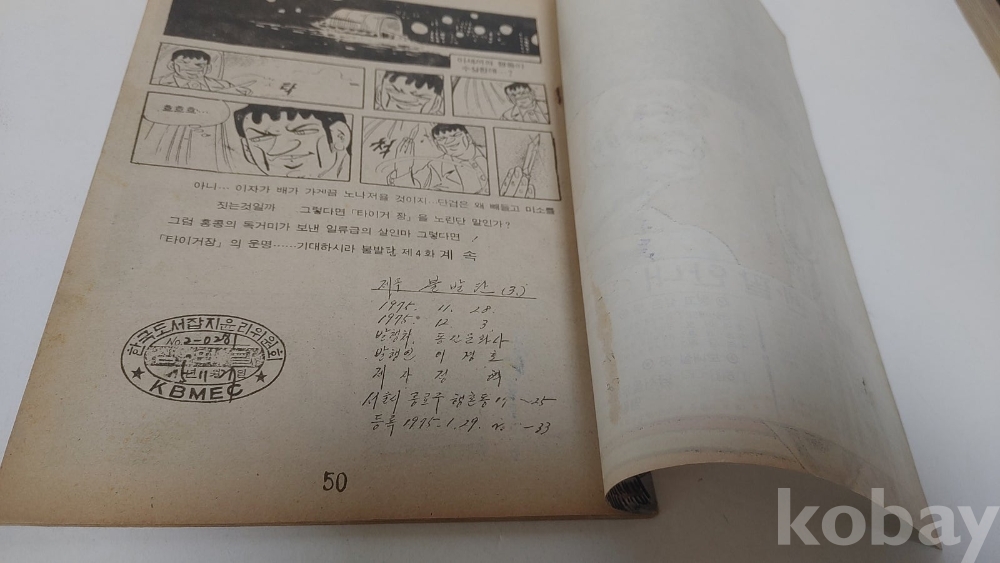 이새끼의
흐흐흐…
탁
척
아니… 이자가 배가 가게끔 노나저을 것이지 단검은 왜 빼들고 미소를
짓는것일까 그렇다면 「타이거 장」을 노린단 말인가?
그럼 홍콩의 독거미가 보낸 일류급의 살인마 그렇다면 !
「타이거장」의 운명……기대하시라 불발탄 제4화 계 속
제목 불 발 탄 (3)
1975. 11. 28.
1975. 12. 3
발행처. 동신문화사
발행인 이 경 호
저 자 김
서울시 종로구 19~25
등록 1975. 1. 29. -33
한국도서잡지윤리위원회
No 2-028
KBMEC
50
kobay